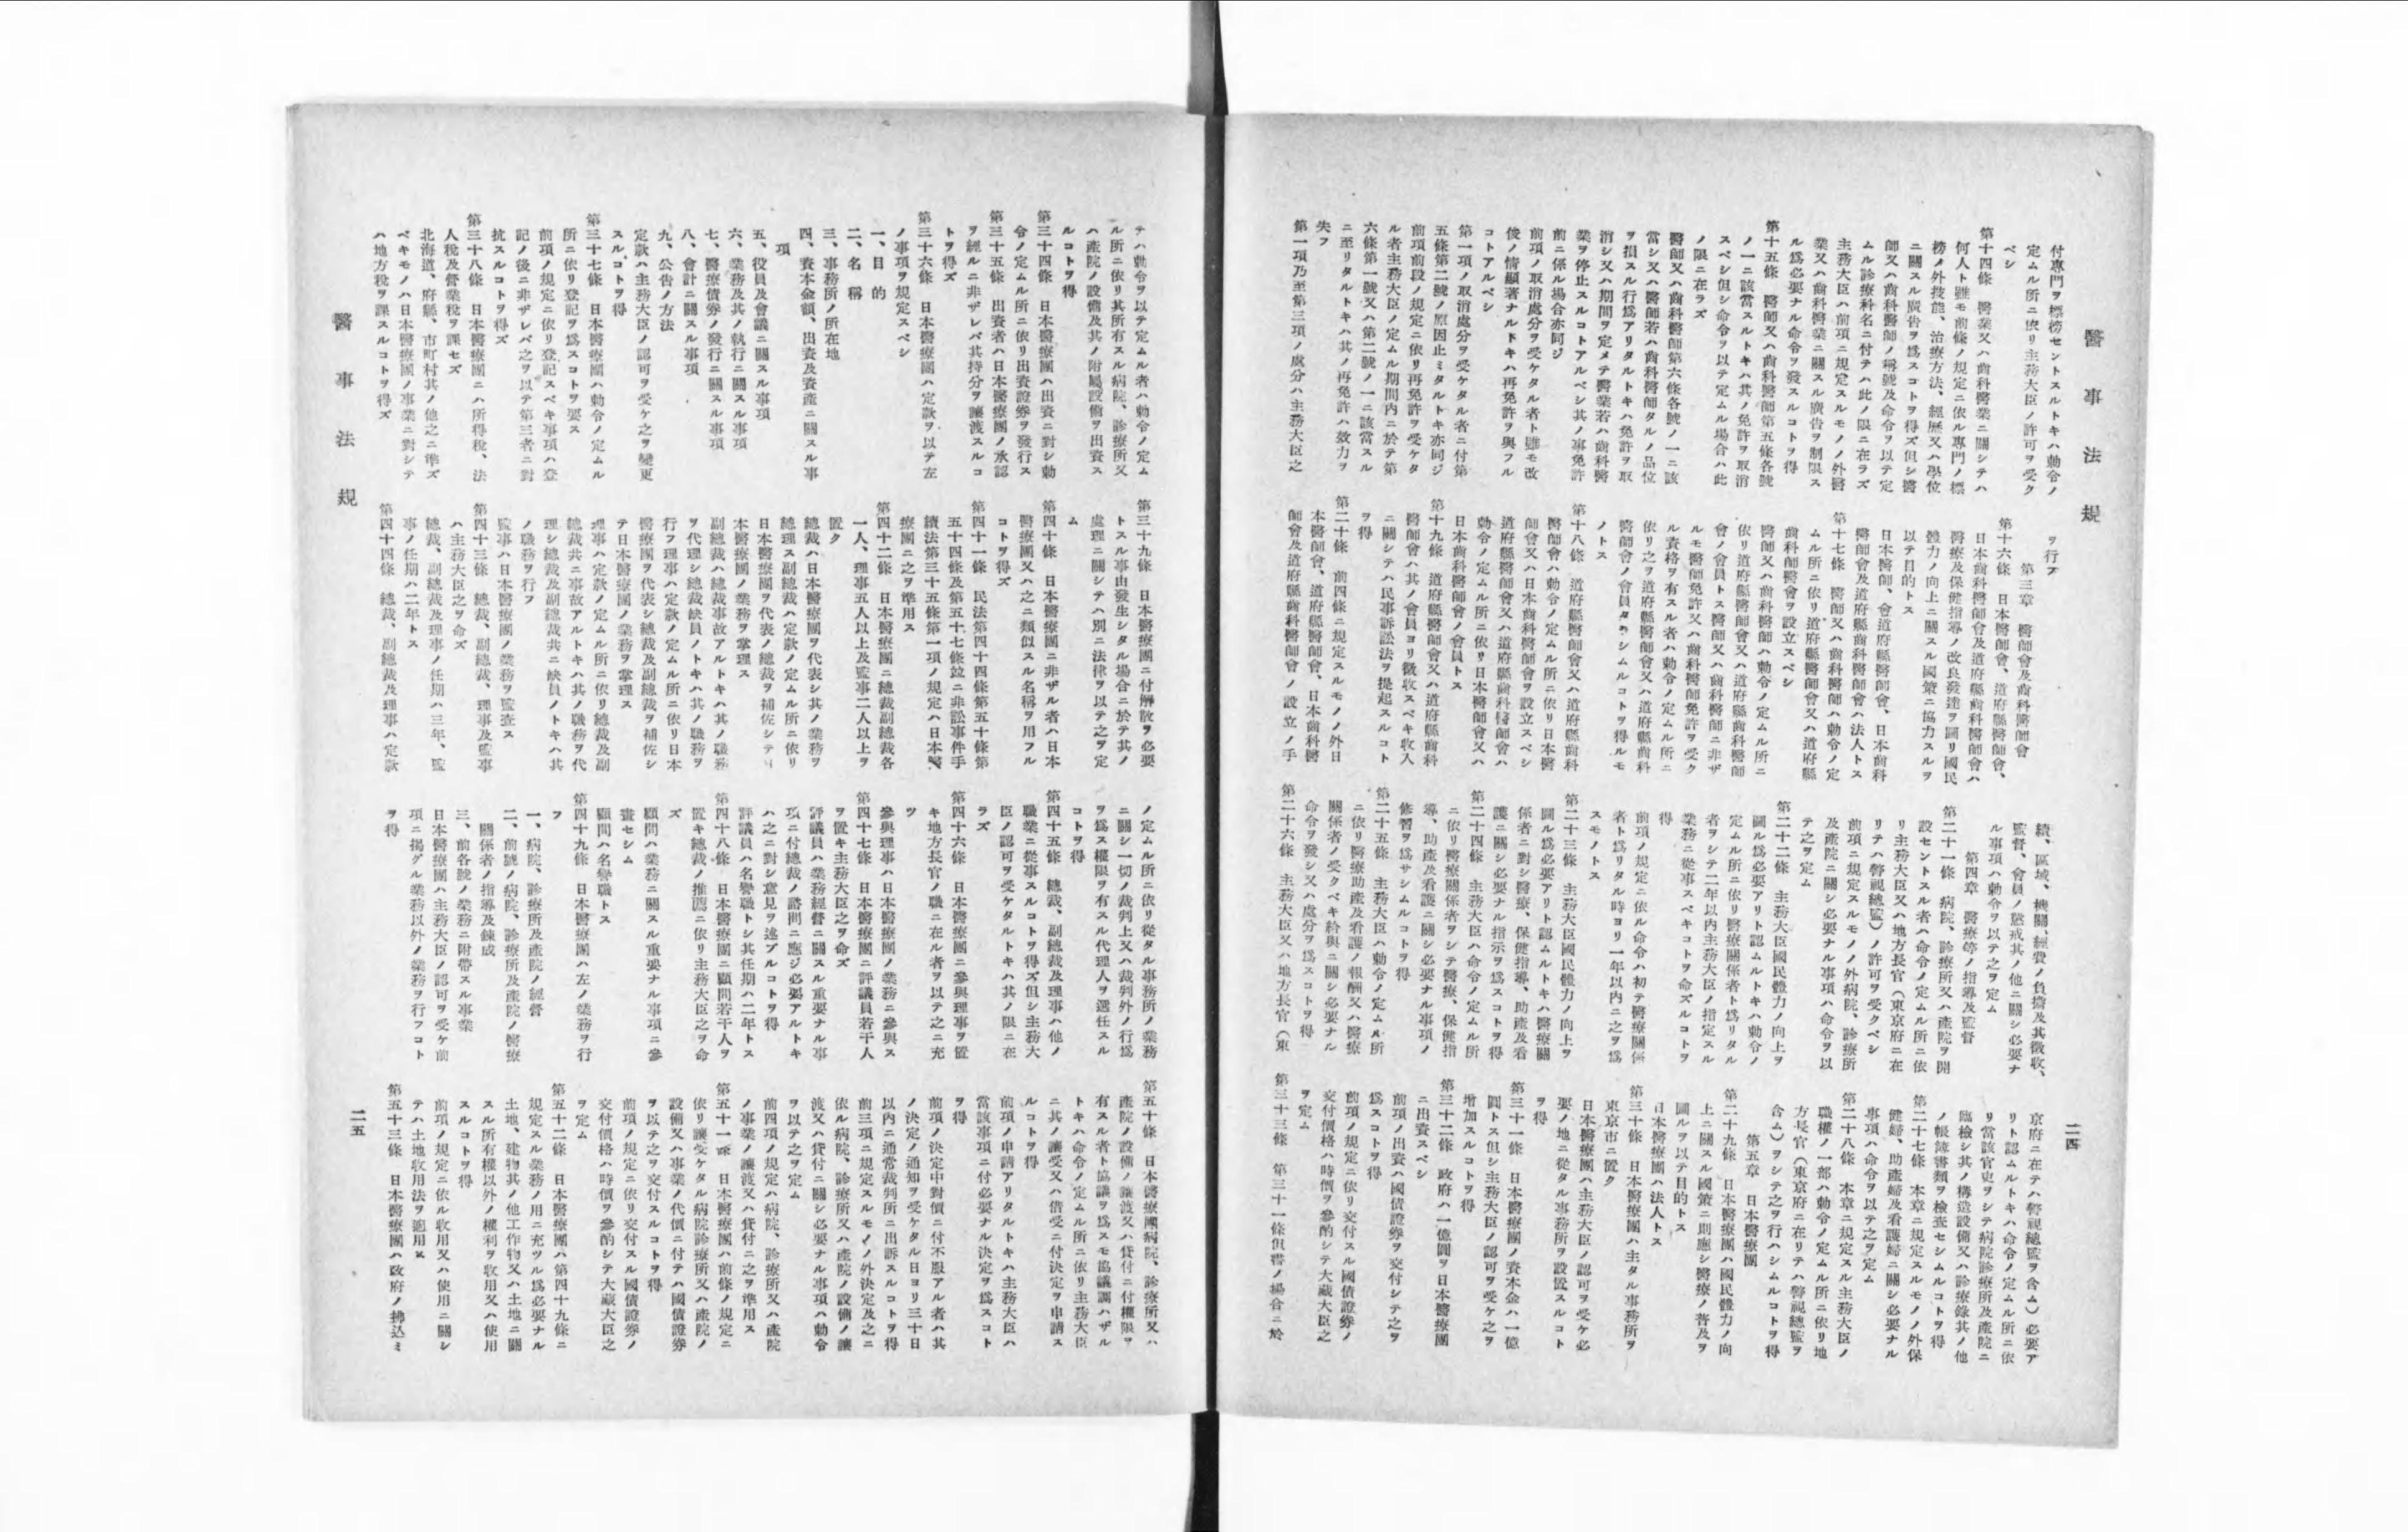 醫事法規
二四
付專門ヲ標榜セントスルトキハ勅令ノ
定ムル所ニ依リ主務大臣ノ許可ヲ受ク
ベシ
第十四條　醫業又ハ齒科醫業ニ關シテハ
何人ト雖モ前條ノ規定ニ依ル專門ノ標
榜ノ外技能、治療方法、經歷又ハ學位
ニ關スル廣告ヲ爲スコトヲ得ズ但シ醫
師又ハ齒科醫師ノ稱號及命令ヲ以テ定
ムル診療科名ニ付テハ此ノ限ニ在ラズ
主務大臣ハ前項ニ規定スルモノノ外醫
業又ハ齒科醫業ニ關スル廣告ヲ制限ス
ル爲必要ナル命令ヲ發スルコトヲ得
第十五條　醫師又ハ齒科醫師第五條各號
ノ一ニ該當スルトキハ其ノ免許ヲ取消
スベシ但シ命令ヲ以テ定ムル場合ハ此
ノ限ニ在ラズ
醫師又ハ齒科醫師第六條各號ノ一ニ該
當シ又ハ醫師若ハ齒科醫師タルノ品位
ヲ損スル行爲アリタルトキハ免許ヲ取
消シ又ハ期間ヲ定メテ醫業若ハ齒科醫
業ヲ停止スルコトアルベシ其ノ事免許
前ニ係ル場合亦同ジ
前項ノ取消處分ヲ受ケタル者ト雖モ改
悛ノ情顯著ナルトキハ再免許ヲ與フル
コトアルベシ
第一項ノ取消處分ヲ受ケタル者ニ付第
五條第二號ノ原因止ミタルトキ亦同ジ
前項前段ノ規定ニ依リ再免許ヲ受ケタ
ル者主務大臣ノ定ムル期間内ニ於テ第
六條第一號又ハ第二號ノ一ニ該當スル
ニ至リタルトキハ其ノ再免許ハ效力ヲ
失フ
第一項乃至第三項ノ處分ハ主務大臣之
ヲ行フ
第三章　醫師會及齒科醫師會
第十六條　日本醫師會、道府縣醫師會、
日本齒科醫師會及道府縣齒科醫師會ハ
醫療及保健指導ノ改良發達ヲ圖リ國民
體力ノ向上ニ關スル國策ニ協力スルヲ
以テ目的トス
日本醫師、會道府縣醫師會、日本齒科
醫師會及道府縣齒科醫師會ハ法人トス
第十七條　醫師又ハ齒科醫師ハ勅令ノ定
ムル所ニ依リ道府縣醫師會又ハ道府縣
齒科醫師會ヲ設立スベシ
醫師又ハ齒科醫師ハ勅令ノ定ムル所ニ
依リ道府縣醫師會又ハ道府縣齒科醫師
會ノ會員トス醫師又ハ齒科醫師ニ非ザ
ルモ醫師免許又ハ齒科醫師免許ヲ受ク
ル資格ヲ有スル者ハ勅令ノ定ムル所ニ
依リ之ヲ道府縣醫師會又ハ道府縣齒科
醫師會ノ會員タラシムルコトヲ得ルモ
ノトス
第十八條　道府縣醫師會又ハ道府縣齒科
醫師會ハ勅令ノ定ムル所ニ依リ日本醫
師會又ハ日本齒科醫師會ヲ設立スベシ
道府縣醫師會又ハ道府縣齒科醫師會ハ
勅令ノ定ムル所ニ依リ日本醫師會又ハ
日本齒科醫師會ノ會員トス
第十九條　道府縣醫師會又ハ道府縣齒科
醫師會ハ其ノ會員ヨリ徵收スベキ收入
ニ關シテハ民事訴訟法ヲ提起スルコト
ヲ得
第二十條　前四條ニ規定スルモノノ外日
本醫師會、道府縣醫師會、日本齒科醫
師會及道府縣齒科醫師會ノ設立ノ手
續、區域、機關、經費ノ負擔及其ノ徵收、
監督、會員ノ懲戒其ノ他ニ關シ必要ナ
ル事項ハ勅令ヲ以テ之ヲ定ム
第四章　醫療等ノ指導及監督
第二十一條　病院、診療所又ハ產院ヲ開
設セントスル者ハ命令ノ定ムル所ニ依
リ主務大臣又ハ地方長官（東京府ニ在
リテハ警視總監）ノ許可ヲ受クベシ
前項ニ規定スルモノノ外病院、診療所
及產院ニ關シ必要ナル事項ハ命令ヲ以
テ之ヲ定ム
第二十二條　主務大臣國民體力ノ向上ヲ
圖ル爲必要アリト認ムルトキハ勅令ノ
定ムル所ニ依リ醫療關係者ト爲リタル
者ヲシテ二年以内主務大臣ノ指定スル
業務ニ從事スベキコトヲ命ズルコトヲ
得
前項ノ規定ニ依ル命令ハ初テ醫療關係
者ト爲リタル時ヨリ一年以内ニ之ヲ爲
スモノトス
第二十三條　主務大臣國民體力ノ向上ヲ
圖ル爲必要アリト認ムルトキハ醫療關
係者ニ對シ醫療、保健指導、助產及看
護ニ關シ必要ナル指示ヲ爲スコトヲ得
第二十四條　主務大臣ハ命令ノ定ムル所
ニ依リ醫療關係者ヲシテ醫療、保健指
導、助產及看護ニ關シ必要ナル事項ノ
修習ヲ爲サシムルコトヲ得
第二十五條　主務大臣ハ勅令ノ定ムル所
ニ依リ醫療助產及看護ノ報酬又ハ醫療
關係者ノ受クベキ給與ニ關シ必要ナル
命令ヲ發シ又ハ處分ヲ爲スコトヲ得
第二十六條　主務大臣又ハ地方長官（東
京府ニ在テハ警視總監ヲ含ム）必要ア
リト認ムルトキハ命令ノ定ムル所ニ依
リ當該官吏ヲシテ病院診療所及產院ニ
臨檢シ其ノ構造設備又ハ診療錄其ノ他
ノ帳簿書類ヲ檢査セシムルコトヲ得
第二十七條　本章ニ規定スルモノノ外保
健婦、助產婦及看護婦ニ關シ必要ナル
事項ハ命令ヲ以テ之ヲ定ム
第二十八條　本章ニ規定スル主務大臣ノ
職權ノ一部ハ勅令ノ定ムル所ニ依リ地
方長官（東京府ニ在リテハ警視總監ヲ
含ム）ヲシテ之ヲ行ハシムルコトヲ得
第五章　日本醫療團
第二十九條　日本醫療團ハ國民體力ノ向
上ニ關スル國策ニ則應シ醫療ノ普及ヲ
圖ルヲ以テ目的トス
日本醫療團ハ法人トス
第三十條　日本醫療團ハ主タル事務所ヲ
東京市ニ置ク
日本醫療團ハ主務大臣ノ認可ヲ受ケ必
要ノ地ニ從タル事務所ヲ設置スルコト
ヲ得
第三十一條　日本醫療團ノ資本金ハ一億
圓トス但シ主務大臣ノ認可ヲ受ケ之ヲ
增加スルコトヲ得
第三十二條　政府ハ一億圓ヲ日本醫療團
ニ出資スベシ
前項ノ出資ハ國債證券ヲ交付シテ之ヲ
爲スコトヲ得
前項ノ規定ニ依リ交付スル國債證券ノ
交付價格ハ時價ヲ參酌シテ大藏大臣之
ヲ定ム
第三十三條　第三十一條但書ノ場合ニ於
テハ勅令ヲ以テ定ムル者ハ勅令ノ定ム
ル所ニ依リ其所有スル病院、診療所又
ハ產院ノ設備及其ノ附屬設備ヲ出資ス
ルコトヲ得
第三十四條　日本醫療團ハ出資ニ對シ勅
令ノ定ムル所ニ依リ出資證券ヲ發行ス
第三十五條　出資者ハ日本醫療團ノ承認
ヲ經ルニ非ザレバ其持分ヲ讓渡スルコ
トヲ得ズ
第三十六條　日本醫療團ハ定款ヲ以テ左
ノ事項ヲ規定スベシ
一、目　的
二、名　稱
三、事務所ノ所在地
四、資本金額、出資及資產ニ關スル事
項
五、役員及會議ニ關スル事項
六、業務及其ノ執行ニ關スル事項
七、醫療債券ノ發行ニ關スル事項
八、會計ニ關スル事項
九、公告ノ方法
定款ハ主務大臣ノ認可ヲ受ケ之ヲ變更
スルコトヲ得
第三十七條　日本醫療團ハ勅令ノ定ムル
所ニ依リ登記ヲ爲スコトヲ要ス
前項ノ規定ニ依リ登記スベキ事項ハ登
記ノ後ニ非ザレバ之ヲ以テ第三者ニ對
抗スルコトヲ得ズ
第三十八條　日本醫療團ニハ所得稅、法
人稅及營業稅ヲ課セズ
北海道、府縣、市町村其ノ他之ニ準ズ
ベキモノハ日本醫療團ノ事業ニ對シテ
ハ地方稅ヲ課スルコトヲ得ズ
第三十九條　日本醫療團ニ付解散ヲ必要
トスル事由發生シタル場合ニ於テ其ノ
處理ニ關シテハ別ニ法律ヲ以テ之ヲ定
ム
第四十條　日本醫療團ニ非ザル者ハ日本
醫療團又ハ之ニ類似スル名稱ヲ用フル
コトヲ得ズ
第四十一條　民法第四十四條第五十條第
五十四條及第五十七條竝ニ非訟事件手
續法第三十五條第一項ノ規定ハ日本醫
療團ニ之ヲ準用ス
第四十二條　日本醫療團ニ總裁副總裁各
一人、理事五人以上及監事二人以上ヲ
置ク
總裁ハ日本醫療團ヲ代表シ其ノ業務ヲ
總理ス副總裁ハ定款ノ定ムル所ニ依リ
日本醫療團ヲ代表ノ總裁ヲ補佐シテ日
本醫療團ノ業務ヲ掌理ス
副總裁ハ總裁事故アルトキハ其ノ職務
ヲ代理シ總裁缺員ノトキハ其ノ職務ヲ
行フ理事ハ定款ノ定ムル所ニ依リ日本
醫療團ヲ代表シ總裁及副總裁ヲ補佐シ
テ日本醫療團ノ業務ヲ掌理ス
理事ハ定款ノ定ムル所ニ依リ總裁及副
總裁共ニ事故アルトキハ其ノ職務ヲ代
理シ總裁及副總裁共ニ缺員ノトキハ其
ノ職務ヲ行フ
監事ハ日本醫療團ノ業務ヲ監査ス
第四十三條　總裁、副總裁、理事及監事
ハ主務大臣之ヲ命ズ
總裁、副總裁及理事ノ任期ハ三年、監
事ノ任期ハ二年トス
第四十四條　總裁、副總裁及理事ハ定款
ノ定ムル所ニ依リ從タル事務所ノ業務
ニ關シ一切ノ裁判上又ハ裁判外ノ行爲
ヲ爲ス權限ヲ有スル代理人ヲ選任スル
コトヲ得
第四十五條　總裁、副總裁及理事ハ他ノ
職業ニ從事スルコトヲ得ズ但シ主務大
臣ノ認可ヲ受ケタルトキハ其ノ限ニ在
ラズ
第四十六條　日本醫療團ニ參與理事ヲ置
キ地方長官ノ職ニ在ル者ヲ以テ之ニ充
ツ
參與理事ハ日本醫療團ノ業務ニ參與ス
第四十七條　日本醫療團ニ評議員若干人
ヲ置キ主務大臣之ヲ命ズ
評議員ハ業務經營ニ關スル重要ナル事
項ニ付總裁ノ諮問ニ應ジ必要アルトキ
ハ之ニ對シ意見ヲ述ブルコトヲ得
評議員ハ名譽職トシ其任期ハ二年トス
第四十八條　日本醫療團ニ顧問若干人ヲ
置キ總裁ノ推薦ニ依リ主務大臣之ヲ命
ズ
顧問ハ業務ニ關スル重要ナル事項ニ參
畫セシム
顧問ハ名譽職トス
第四十九條　日本醫療團ハ左ノ業務ヲ行
フ
一、病院、診療所及產院ノ經營
二、前號ノ病院、診療所及產院ノ醫療
關係者ノ指導及鍊成
三、前各號ノ業務ニ附帶スル事業
日本醫療團ハ主務大臣ノ認可ヲ受ケ前
項ニ揭グル業務以外ノ業務ヲ行フコト
ヲ得
第五十條　日本醫療團病院、診療所又ハ
產院ノ設備ノ讓渡又ハ貸付ニ付權限ヲ
有スル者ト協議ヲ爲スモ協議調ハザル
トキハ命令ノ定ムル所ニ依リ主務大臣
ニ其ノ讓受又ハ借受ニ付決定ヲ申請ス
ルコトヲ得
前項ノ申請アリタルトキハ主務大臣ハ
當該事項ニ付必要ナル決定ヲ爲スコト
ヲ得
前項ノ決定中對價ニ付不服アル者ハ其
ノ決定ノ通知ヲ受ケタル日ヨリ三十日
以内ニ通常裁判所ニ出訴スルコトヲ得
前三項ニ規定スルモノノ外決定及之ニ
依ル病院、診療所又ハ產院ノ設備ノ讓
渡又ハ貸付ニ關シ必要ナル事項ハ勅令
ヲ以テ之ヲ定ム
前四項ノ規定ハ病院、診療所又ハ產院
ノ事業ノ讓渡又ハ貸付ニ之ヲ準用ス
第五十一條　日本醫療團ハ前條ノ規定ニ
依リ讓受ケタル病院診療所又ハ產院ノ
設備又ハ事業ノ代價ニ付テハ國債證券
ヲ以テ之ヲ交付スルコトヲ得
前項ノ規定ニ依リ交付スル國債證券ノ
交付價格ハ時價ヲ參酌シテ大藏大臣之
ヲ定ム
第五十二條　日本醫療團ハ第四十九條ニ
規定スル業務ノ用ニ充ツル爲必要ナル
土地、建物其ノ他工作物又ハ土地ニ關
スル所有權以外ノ權利ヲ收用又ハ使用
スルコトヲ得
前項ノ規定ニ依ル收用又ハ使用ニ關シ
テハ土地收用法ヲ適用ス
第五十三條　日本醫療團ハ政府ノ拂込ミ
醫事法規
二五